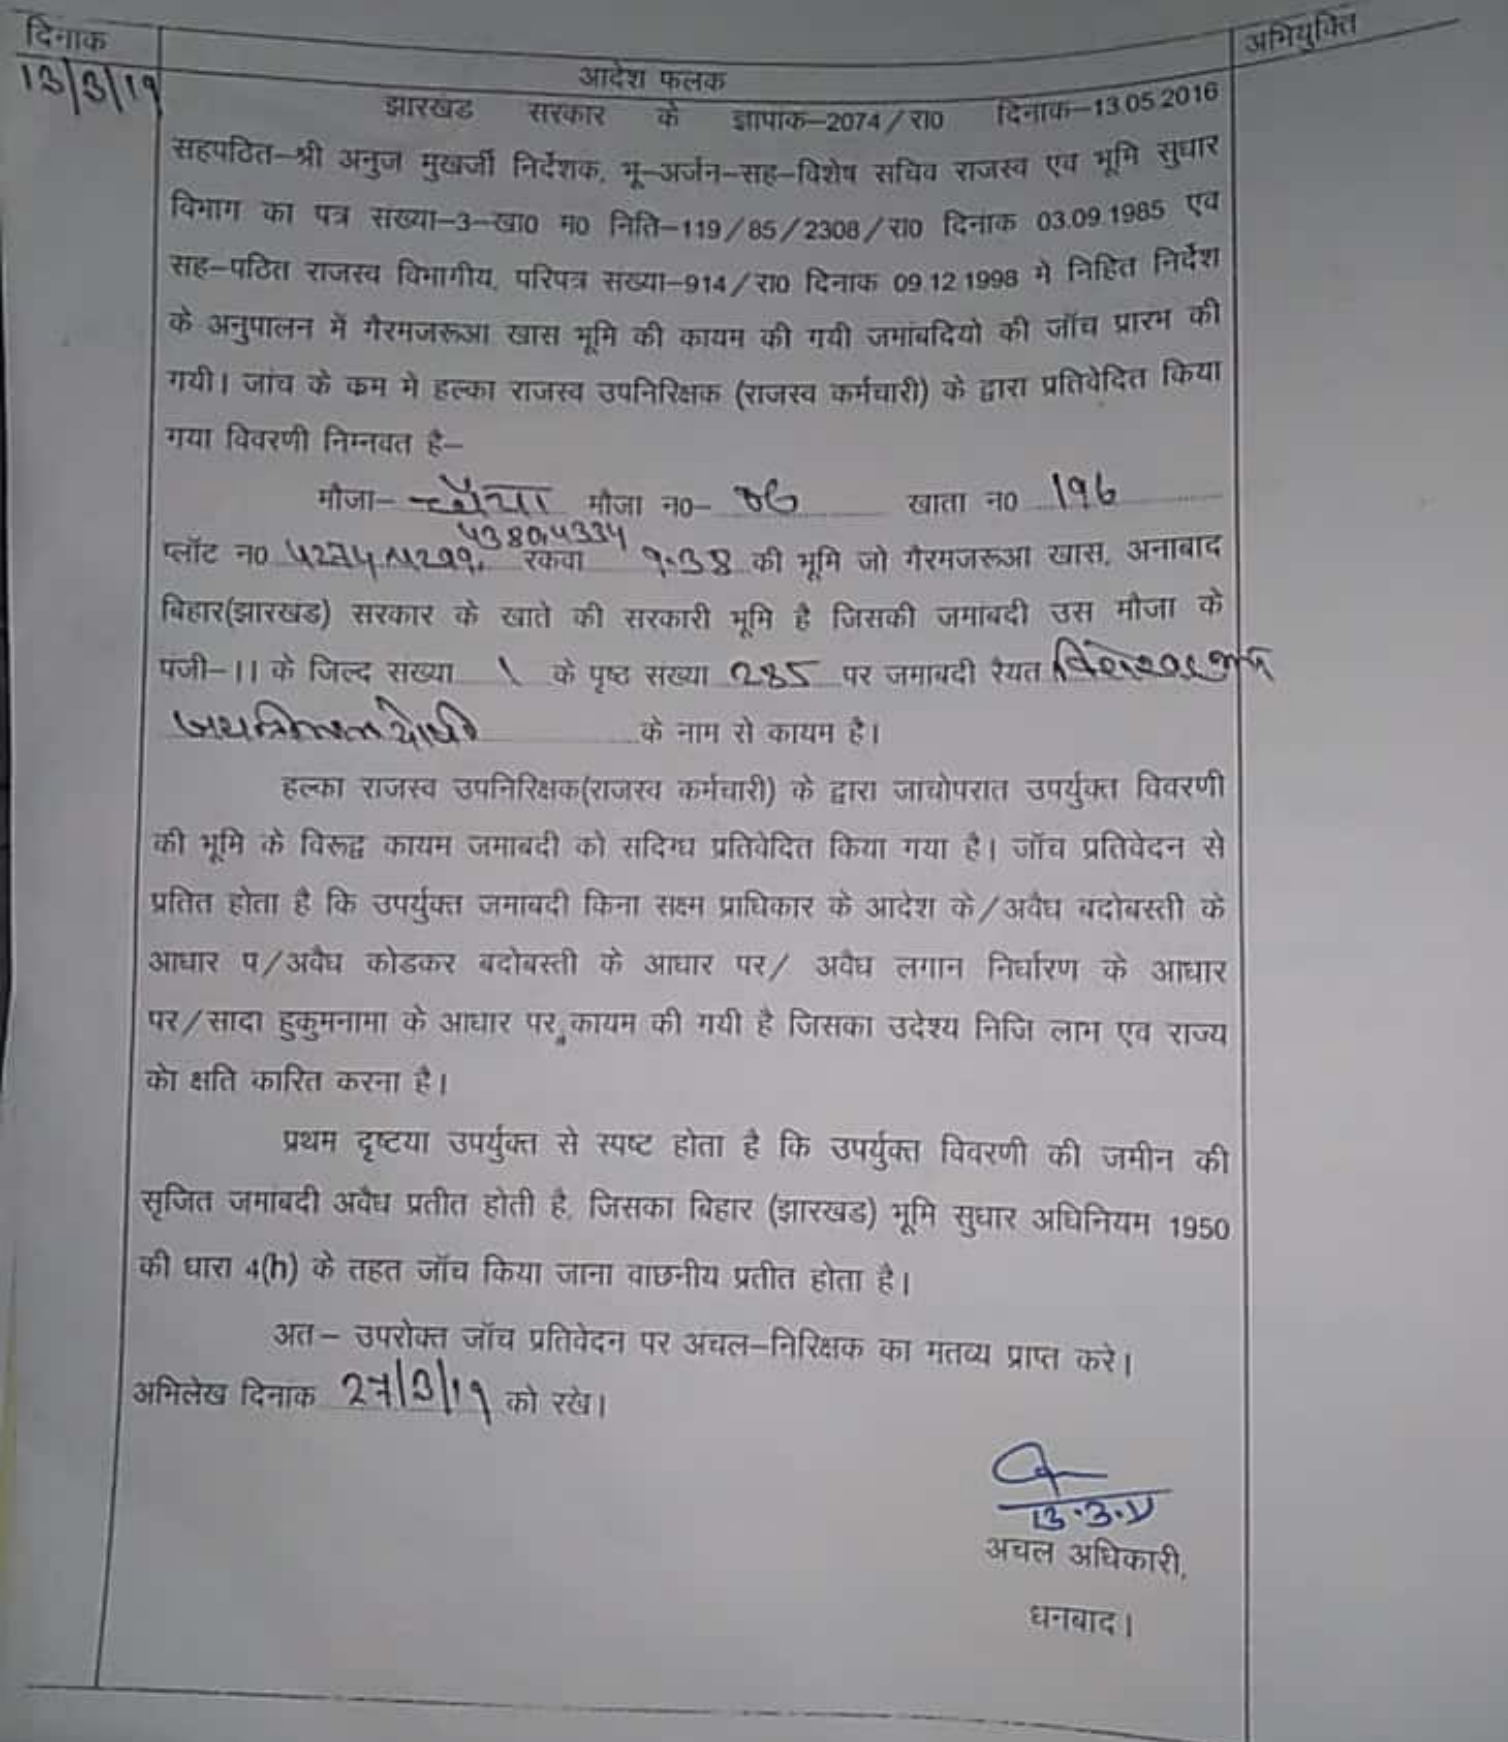 दिनाक
अभियुक्ति
13/3/19
आदेश फलक
झारखंड सरकार के ज्ञापांक-2074/रा0 दिनाक-13.05.2016
सहपठित-श्री अनुज मुखर्जी निर्देशक, भू-अर्जन-सह-विशेष सचिव राजस्व एव भूमि सुधार
विभाग का पत्र संख्या-3-खा0 म0 निति-119/85/2308/रा0 दिनांक 03.09.1985 एव
सह-पठित राजस्व विभागीय, परिपत्र संख्या-914/रा0 दिनाक 09.12.1998 मे निहित निर्देश
के अनुपालन में गैरमजरूआ खास भूमि की कायम की गयी जमांबदियो की जॉच प्रारभ की
गयी। जांच के कम मे हल्का राजस्व उपनिरिक्षक (राजस्व कर्मचारी) के द्वारा प्रतिवेदित किया
गया विवरणी निम्नवत है-
मौजा- मौजा न0- 06 खाता न0 196
4380,4334
प्लॉट न0 4274, 4299, रकवा 9.38 की भूमि जो गैरमजरूआ खास, अनाबाद
बिहार(झारखंड) सरकार के खाते की सरकारी भूमि है जिसकी जमांबदी उस मौजा के
पंजी-II के जिल्द संख्या 1 के पृष्ठ संख्या 285 पर जमाबदी रैयत
के नाम से कायम है।
हल्का राजस्व उपनिरिक्षक(राजस्व कर्मचारी) के द्वारा जाचोपरात उपर्युक्त विवरणी
की भूमि के विरूद्व कायम जमाबदी को सदिग्ध प्रतिवेदित किया गया है। जॉच प्रतिवेदन से
प्रतित होता है कि उपर्युक्त जमाबदी किना सक्ष्म प्राधिकार के आदेश के/अवैध बदोबस्ती के
आधार प/अवैध कोडकर बदोबस्ती के आधार पर/ अवैध लगान निर्धारण के आधार
पर/सादा हुकुमनामा के आधार पर कायम की गयी है जिसका उदेश्य निजि लाभ एव राज्य
को क्षति कारित करना है।
प्रथम दृष्टया उपर्युक्त से स्पष्ट होता है कि उपर्युक्त विवरणी की जमीन की
सृजित जमांबदी अवैध प्रतीत होती है, जिसका बिहार (झारखंड) भूमि सुधार अधिनियम 1950
की धारा 4(h) के तहत जॉच किया जाना वाछनीय प्रतीत होता है।
अत- उपरोक्त जॉच प्रतिवेदन पर अचल-निरिक्षक का मतव्य प्राप्त करे।
अभिलेख दिनाक 27/3/19 को रखे।
13.3.19
अचल अधिकारी,
धनबाद।